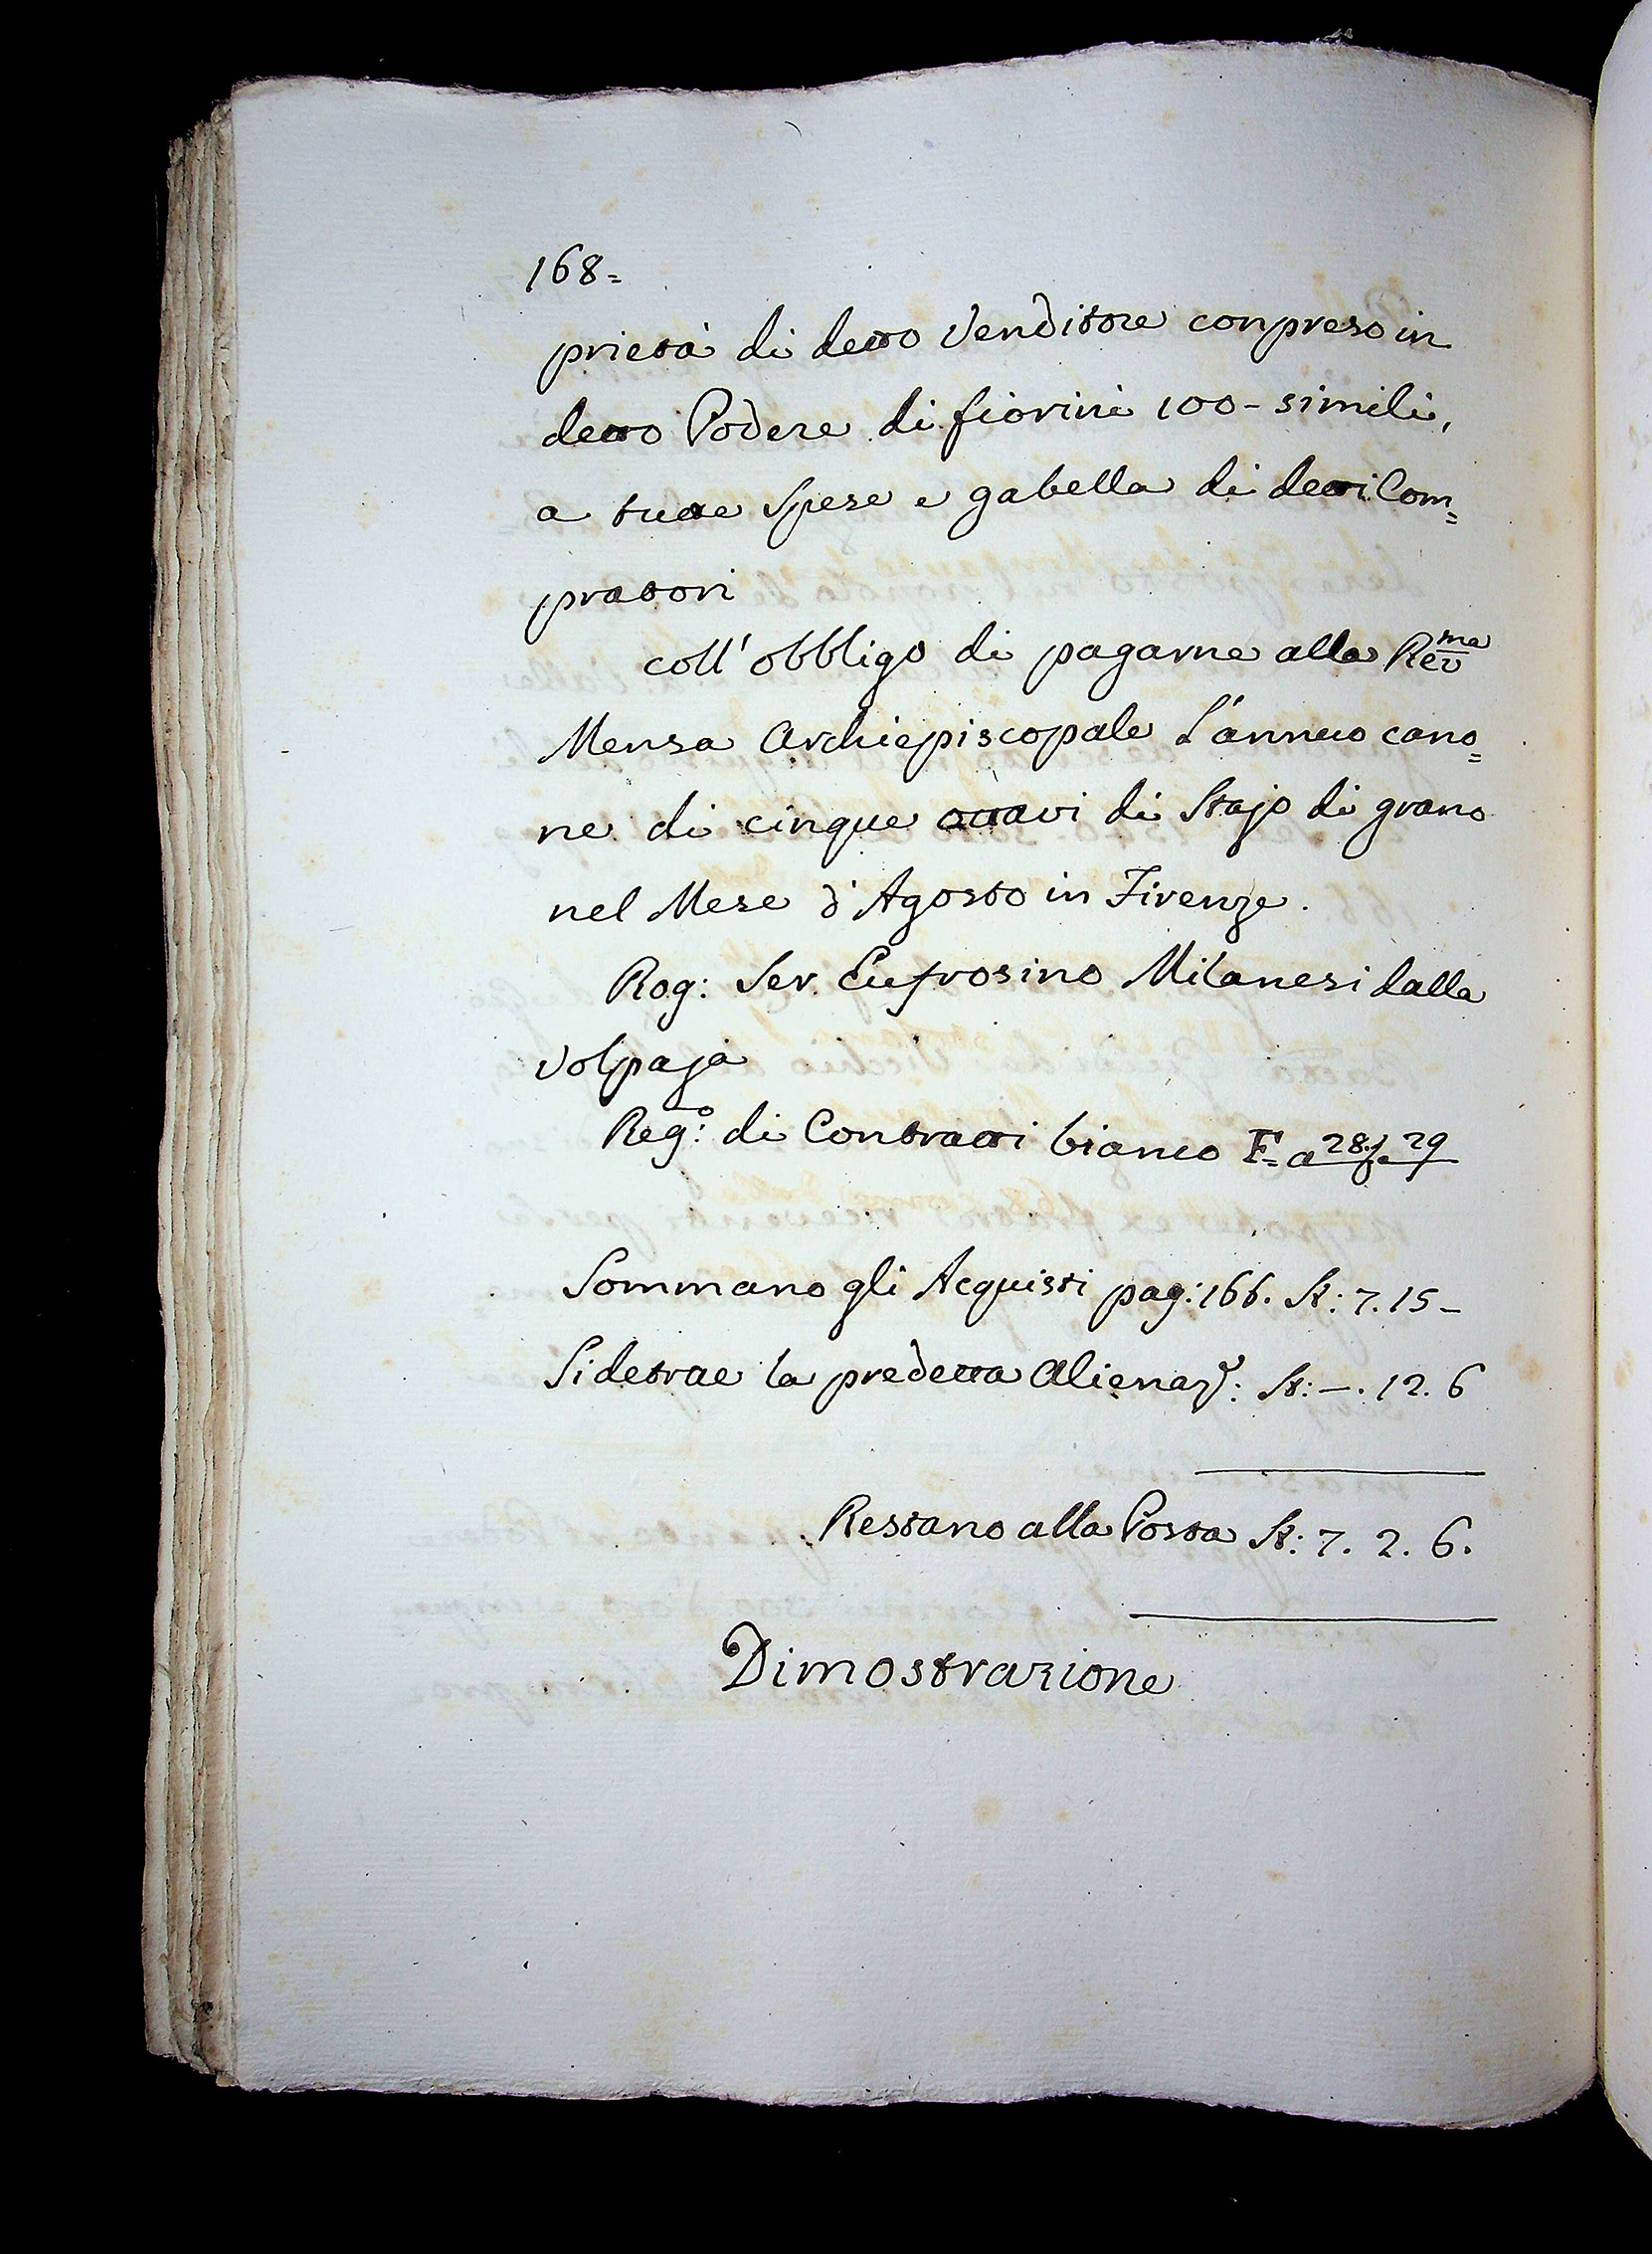 168=
prietà di detto Venditore conpreso in
detto Podere di fiorini 100 - simili,
a tutte Spese e gabella di detti Com=
pratori
coll'obbligo di pagarne alla Rev.ma
Mensa Archiepiscopale L'annuo cano=
ne di cinque ottavi di Stajo di grano
nel Mese d'Agosto in Firenze.
Rog: Ser Eufrosino Milanesi dalla
Volpaja
Reg:o di Contratti bianco F= a 28. e 29
Sommano gli Acquisti pag: 166. St: 7. 15 -
Si detrae la predetta Alienaz: St: -. 12. 6
Restano alla Posta St: 7. 2. 6.
Dimostrazione